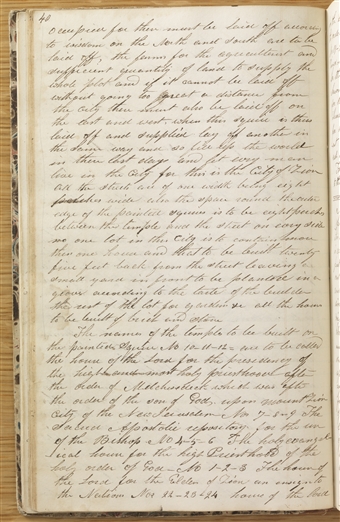 40
occupied for these must be laid off according
to wisdom on the North and South are to be
laid off, the farms for the agriculturist and
sufficient quantity of land to supply the
whole plot and if it cannot be laid off
without going to great a distance from
the city there must also be laid off on
the east and west when this square is thus
laid off and supplied lay off another in
the same way and so fill up the world
in these last days and let every man
live in the City for this is the City of Zion
All the streets are of one width being eight
perches wide also the space round the outer
edge of the painted squares is to be eight perches
between the temple and the street on every side
no one lot in this City is to contain more
than one house and that to be built twenty
five feet back from the street leaving a
small yard in front to be planted in a
grove according to the taste of the builder
the rest of the lot for gardens &c all the houses
to be built of brick and stone
The names of the temples to be built on
the painted Square No 10-11-12= are to be called
the house of the Lord for the presidency of
the high and most holy priesthood after
the order of Melchisedeck which was after
the order of the son of God, upon mount Zion
City of the New Jerusalem No 7-8-9 The
Sacred Apostolic repository for the use
of the Bishop No 4-5-6 The holy evangel
ical house for the high Priesthood of the
holy order of God No 1-2-3 The house of
the Lord for the Elders of Zion an ensign to
the Nations Nos 22-23-24 house of the Lord